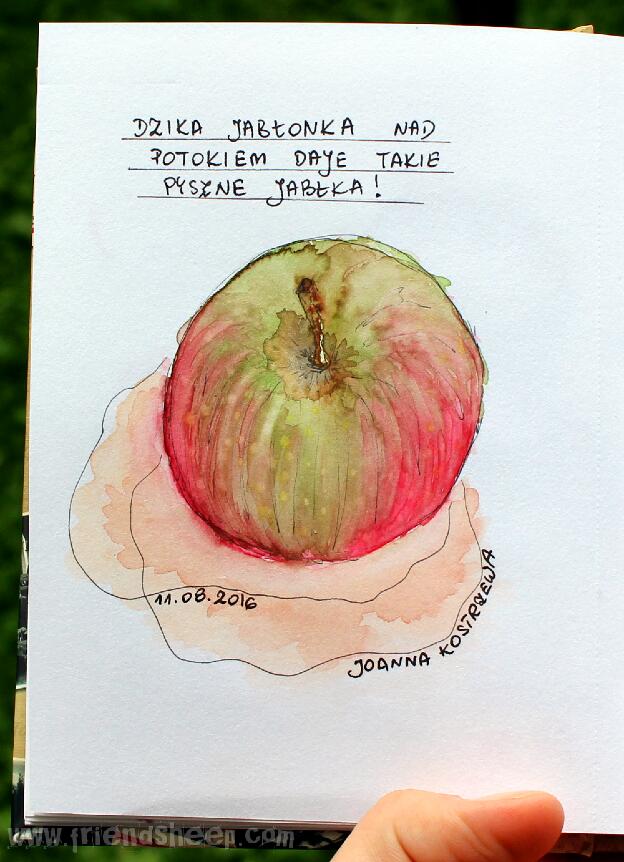 DZIKA JABŁONKA NAD
POTOKIEM DAJE TAKIE
PYSZNE JABŁKA!
11.08.2016
JOANNA KOSTRZEWA
www.friendsheep.com